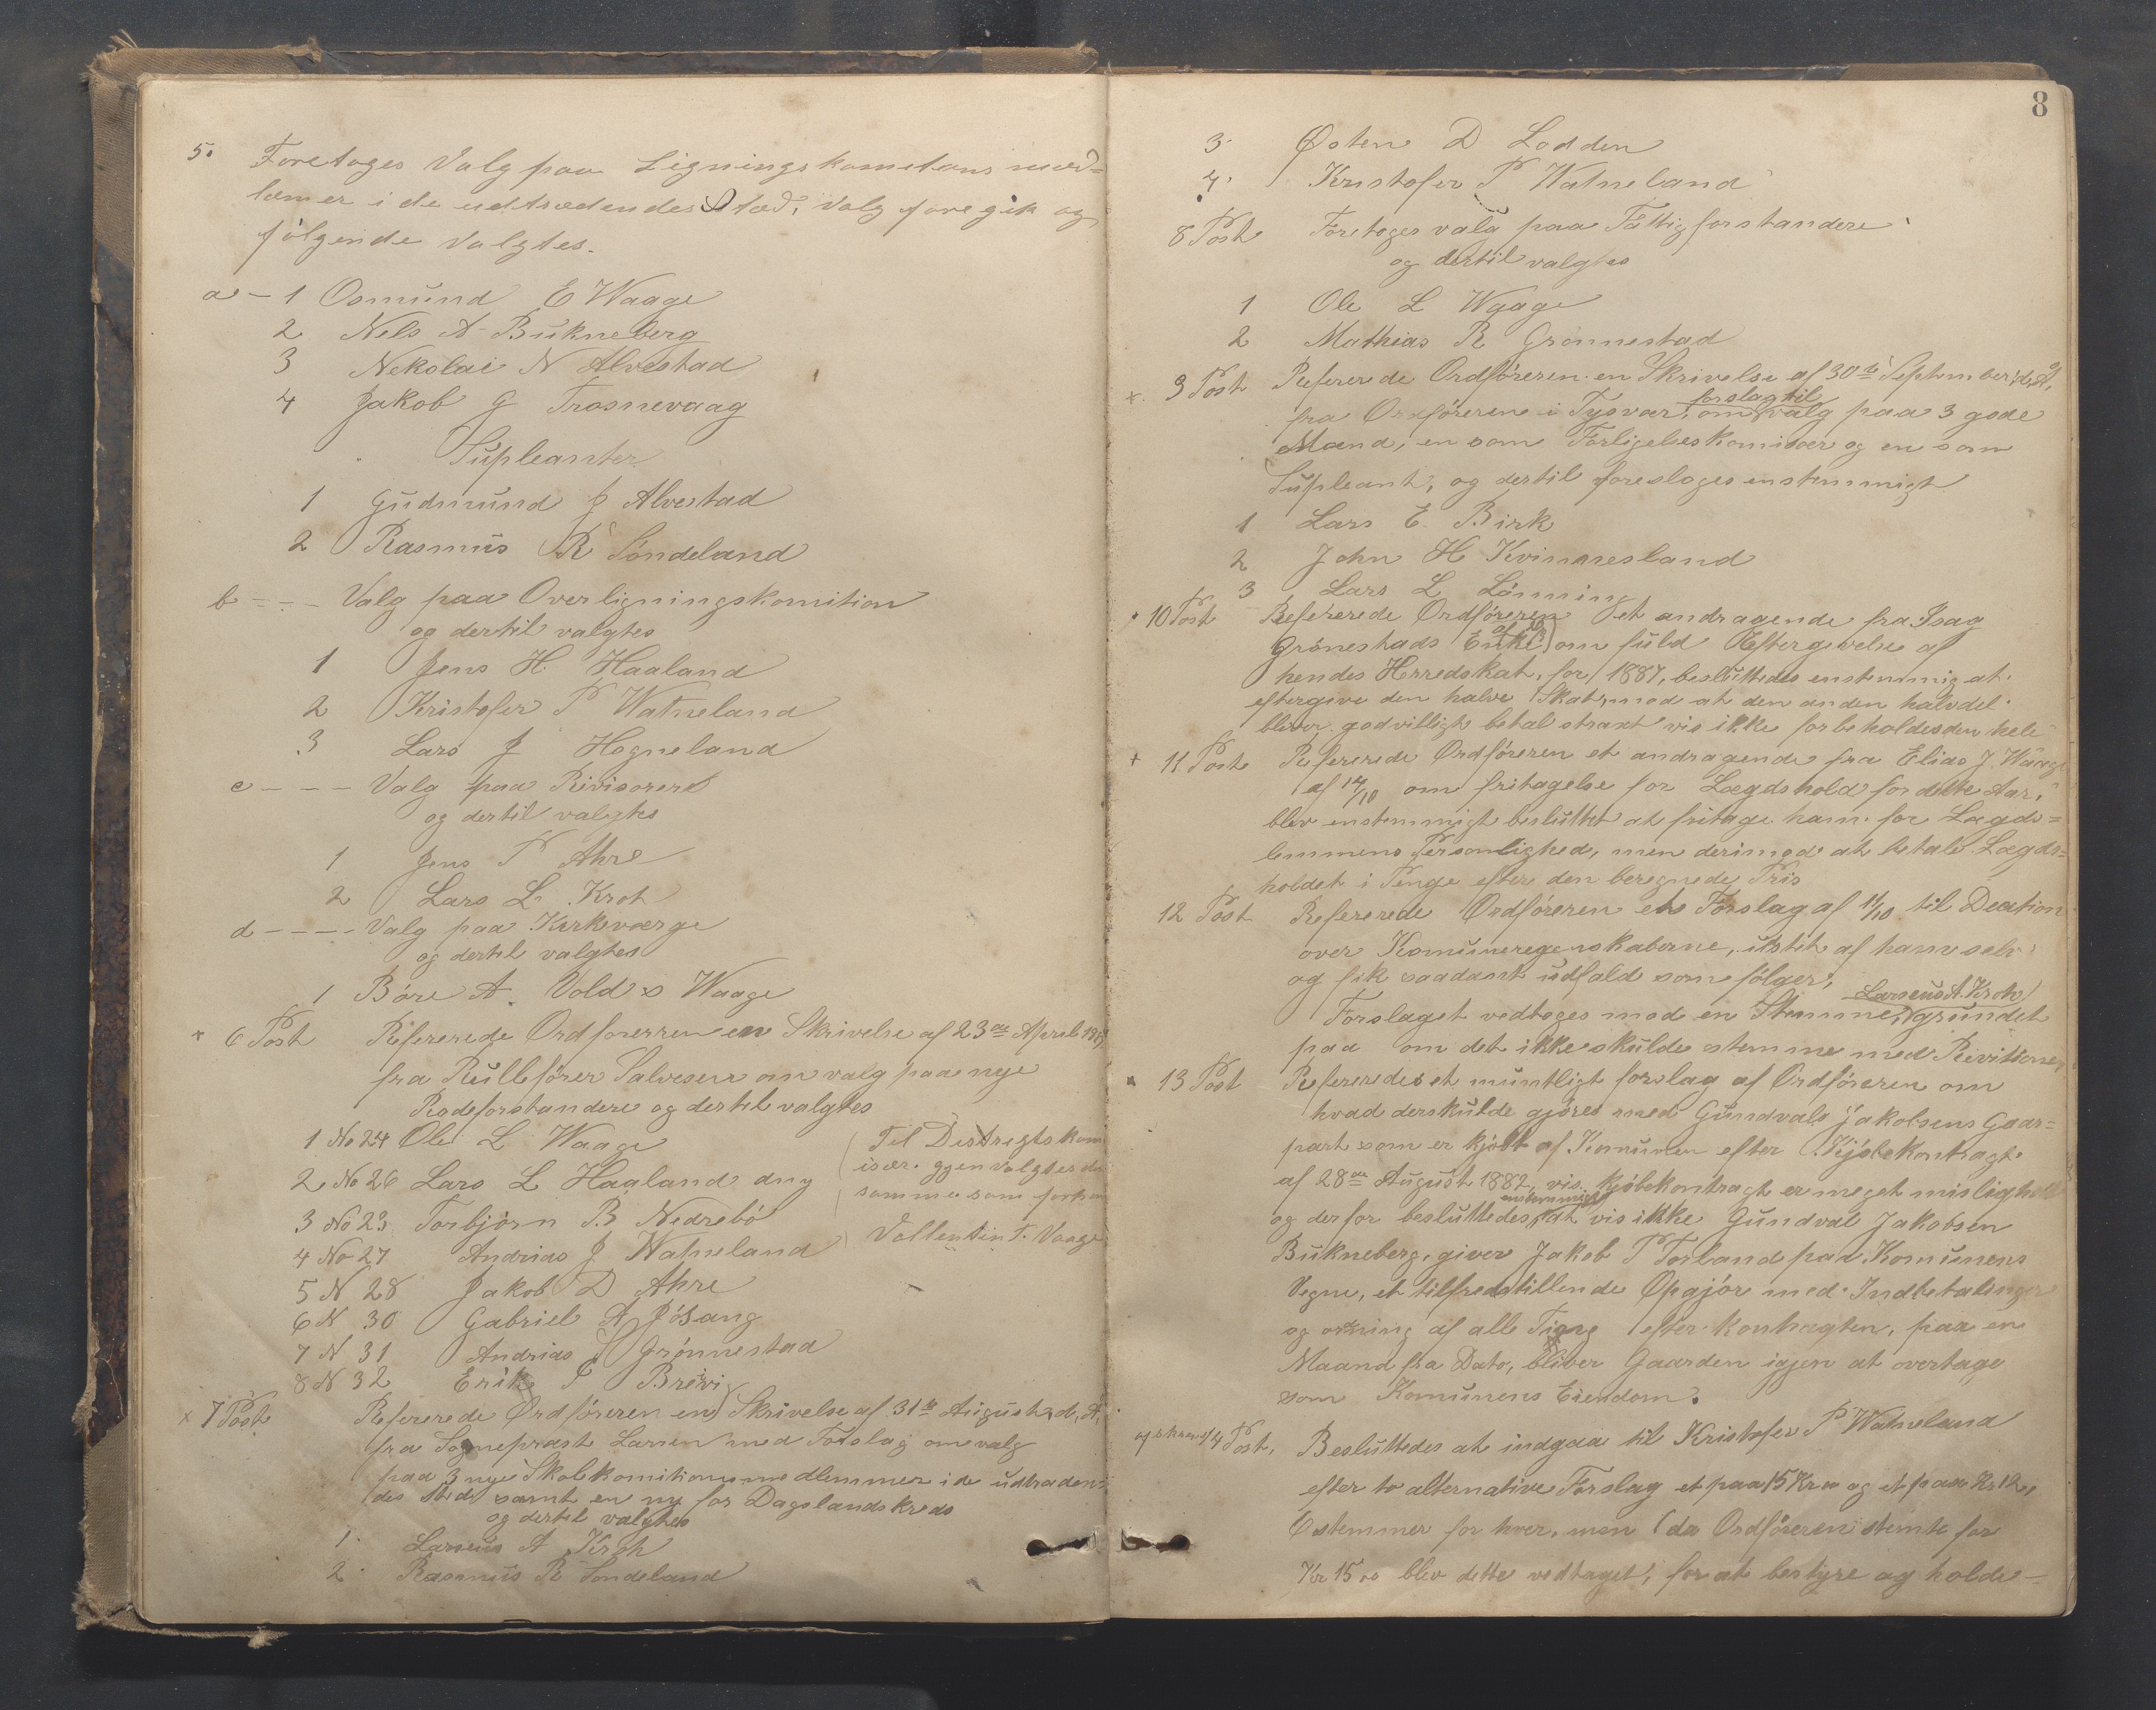 5. Foretoges Valg paa Ligningskometens med=
lemer i de udtrædendes Stæd, Valg foregik og
følgende Valgtes.
a - 1 Osmund E Waage
2 Nels A Bukneberg
3 Nekolai N Alvestad
4 Jakob G Trosnevaag
Supleanter
1 Gudmund J Alvestad
2 Rasmus R Søndeland
b - - - Valg paa Overligningskomition
og dertil valgtes
1 Jens H Haaland
2 Kristofer P Watneland
3 Lars J Hogneland
c - - - Valg paa Rivisorere
og dertil valgtes
1 Jens P Ahre
2 Lars L. Kroh
d - - - - Valg paa Kirkeværge
og dertil valgtes
1 Bore A. Volds Waage
x 6 Post Refererede Ordforerren en Skrivelse af 23de April
fra Rulleforer Salvesen om valg paa nye
Rodeforstandere og dertil valgtes
1 No 24 Ole L Waage
Til Distrigtskom
2 No 26 Lars L Haaland dny
især. gjenvalgtes d
samme som forhen
3 No 23 Torbjørn B Nedrebø
Vallentin T. Vaage
4 No 27 Andrias J Watneland
5 N 28 Jakob D Ahre
6 N 30 Gabriel A Jøsang
7 N 31 Andrias Grønnestad
8 N 32 Erik P Brekvig
x 7 Post Refererede Ordføreren en Skrivelse af 31te August d. A,
fra Sogneprest Larsen med Forslag om valg
paa 3 nye Skolekomitionsmedlemmer i de udtræden=
des sted samt en ny for Dagslandskreds
og dertil valgtes
1. Larseus A Kroh
2. Rasmus R Søndeland
8
3. Østen D Lodden
4. Kristofer P Watneland
8 Post Foretoges valg paa Fattigforstandere
og dertil valgtes
1 Ole L Waage
2 Mathias R Grønnestad
x 9 Post Refererede Ordføreren en Skrivelse af 30te September d. A,
forslag til
fra Ordføreren i Tysvar, om valg paa 3 gode
Mænd, en som Forligelseskomisær og en som
Supleant, og dertil foresloges enstemmigt
1 Lars E. Birk
2 John H Kvinnesland
3 Lars L Lønning
10 Post Refererede Ordføreren et andragende fra Isag
Grønestads Enke om fuld Eftergivelse af
hendes Herredskat, for 1887, besluttedes enstemmig at
eftergive den halve Skat, mod at den anden halvdel
bliver godvilligt betal straxt vis ikke forbeholdes den hele
+ 11 Post Refererede Ordføreren et andragende fra Elias J. Waage
af 14/10 om fritagelse for Lægdshold for dette Aar,
blev enstemmigt besluttet at fritage ham for Lægds=
lemmens Personlighed, men derimod at betale Lægds=
holdet i Penge efter den beregnede Priis
12 Post Refererede Ordføreren et Forslag af 11/10 til Dection
over Komuneregnskaberne, utstet af ham selv
og fik saadant udfald som følger,
Larseus A. Kroh
Forslaget vedtoges mod en Stemme, grundet
paa om det ikke skulde stemme med Revitionen
x 13 Post Refereredes et muntligt forslag af Ordføreren om
hvad der skulde gjøres med Gundvals Jakobsens Gaar=
part som er kjøbt af Komunen efter Kjøbekontragt
af 28de August 1882, vis kjøbekontragt er meget misligholt
enstemmigt
og derfor besluttedes, at vis ikke Gundval Jakobsen
Bukneberg, giver Jakob P Torland paa Komunens
Vegne, et tilfredstillende Opgjør med Indbetalinger
og ordning af alle Ting efter kontragten, paa en
Maand fra Dato, bliver Gaarden igjen at overtage
som Komunens Eiendom.
14 Post, Besluttedes at indgaa til Kristofer P Watneland
efter to alternative Forslag et paa 15 Kr og et paa Kr 12,
6 stemmer for hver, men da Ordføreren stemte for
Kr 15 blev dette vedtaget, for at bestyre og holde